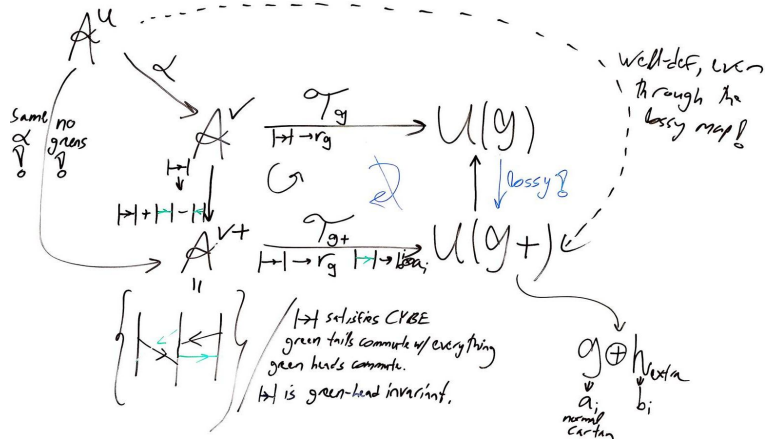 𝒜ᵘ
α
same
α
!
no
greens
!
𝒜ᵛ
𝒯g
|→|→rg
U(g)
well-def, even
through the
lossy map!
|→|
↓
|→|+|→|-|←|
lossy!
𝒜ᵛ⁺
𝒯g+
|→|→rg |→|→
U(g+)
||
|→| satisfies CYBE
green tails commute w/ everything
green heads commute.
|→| is green-head invariant.
g⊕h extra
aᵢ bᵢ
normal
Cartan